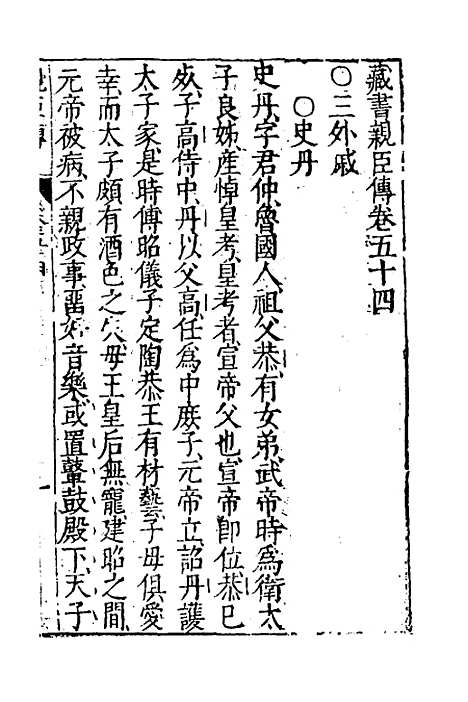 藏書親臣傳卷五十四
○三外戚
○史丹
史丹、字君仲、魯國人、祖父恭、有女弟、武帝時爲衛太
子良娣、產悼皇考、皇考者、宣帝父也、宣帝卽位、恭已
死、子高侍中、丹以父高、任爲中庶子、元帝立、詔丹護
太子家、是時傅昭儀子定陶恭王有材藝、子母俱愛
幸、而太子頗有酒色之失、母王皇后無寵、建昭之間、
元帝被病、不親政事、畱好音樂、或置鼙鼓殿下、天子